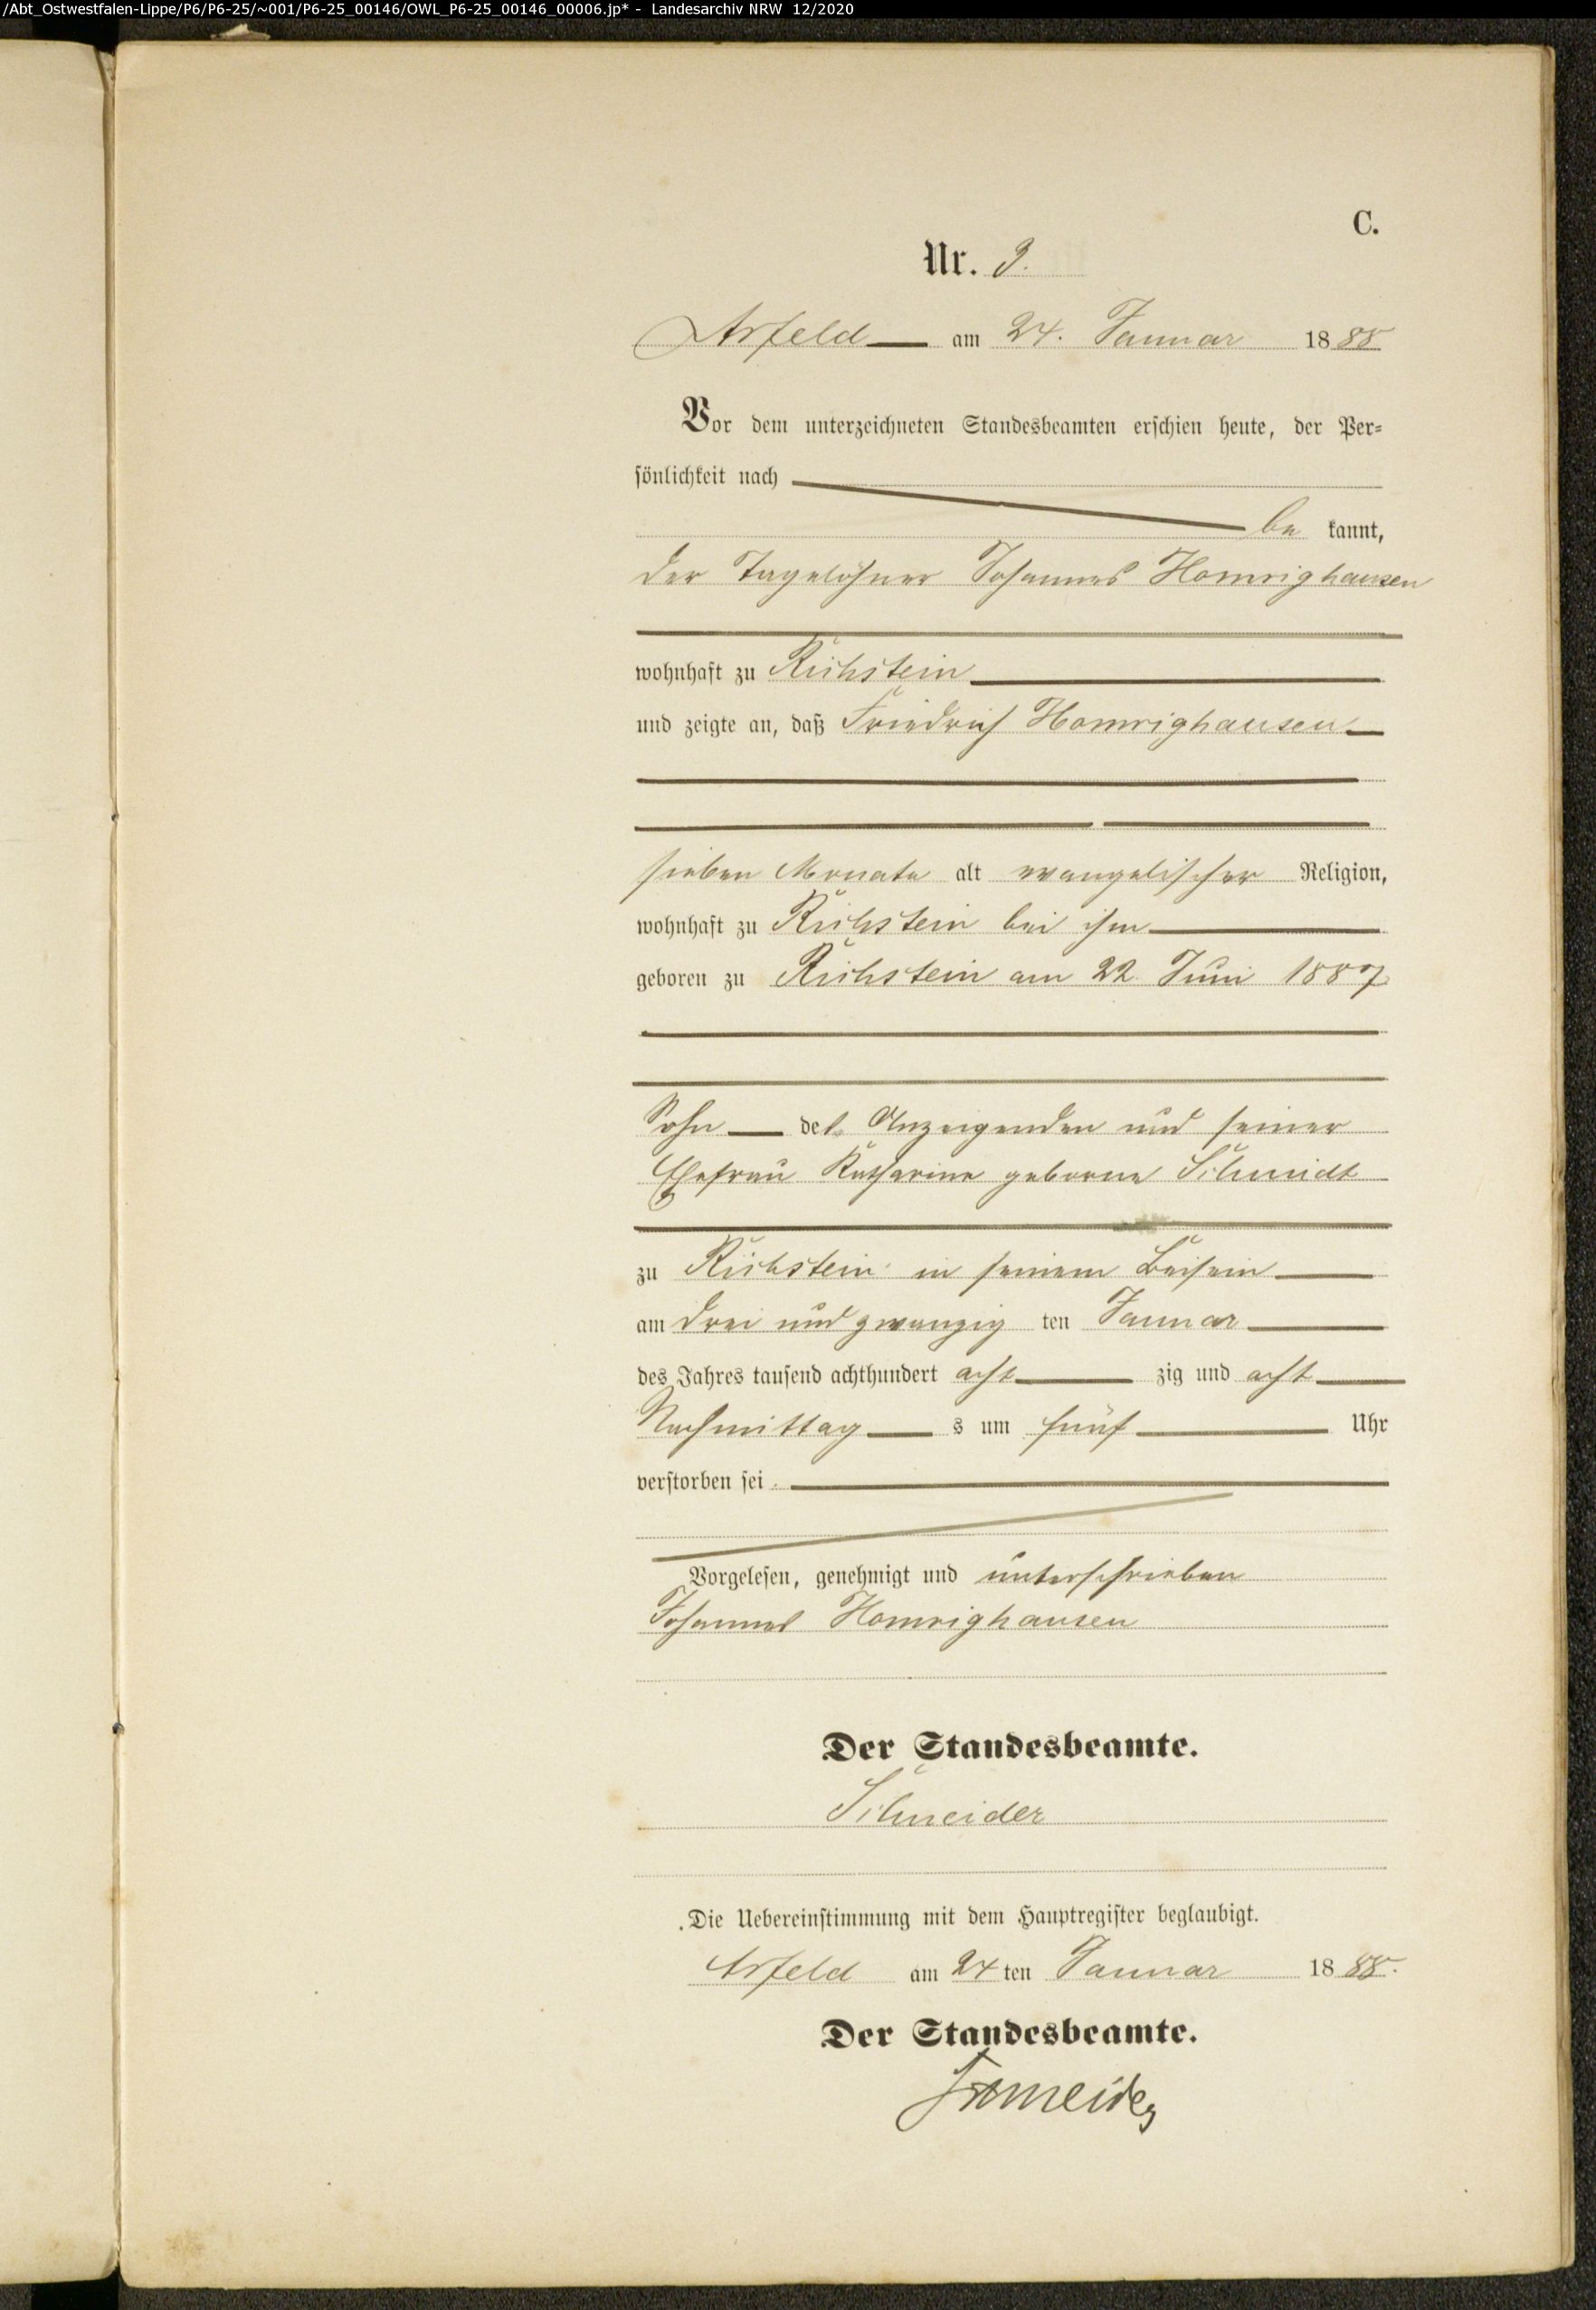 /Abt_Ostwestfalen-Lippe/P6/P6-25/~001/P6-25_00146/OWL_P6-25_00146_00006.jp* - Landesarchiv NRW 12/2020
C.
Nr. 3.
Arfeld am 24. Januar 1888
Vor dem unterzeichneten Standesbeamten erschien heute, der Per=
sönlichkeit nach
be kannt,
der Tagelöhner Johannes Homrighausen
wohnhaft zu Richstein
und zeigte an, daß Friedrich Homrighausen
sieben Monate alt evangelischer Religion,
wohnhaft zu Richstein bei ihm
geboren zu Richstein am 22 Juni 1887
Sohn des Anzeigenden und seiner
Ehefrau Katharine geborne Schmidt
zu Richstein in seinem Beisein
am drei und zwanzig ten Januar
des Jahres tausend achthundert acht zig und acht
Nachmittag s um fünf Uhr
verstorben sei
Vorgelesen, genehmigt und unterschrieben
Johannes Homrighausen
Der Standesbeamte.
Schneider
Die Uebereinstimmung mit dem Hauptregister beglaubigt.
Arfeld am 24 ten Januar 1888.
Der Standesbeamte.
Schneider